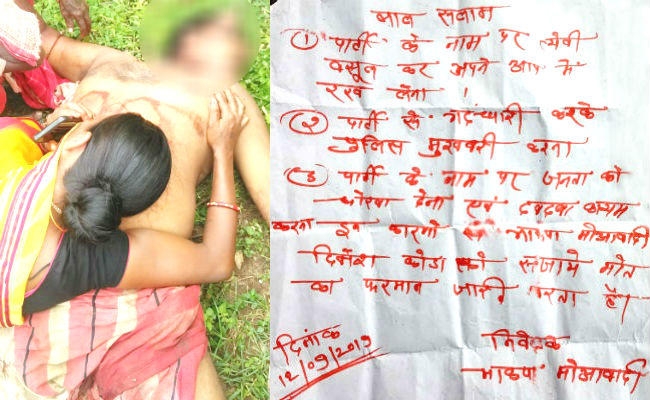 लाल सलाम
① पार्टी के नाम पर लेवी
वसूल कर अपने आप में
रख लेना !
② पार्टी से गद्दारी करके
पुलिस मुखबरी करना
③ पार्टी के नाम पर जनता को
धोखा देना एवं दबदबा कायम
करना इन कारणों से भाकपा माओवादी
दिनेश कोडा को सजाये मौत
का फरमान जारी करता है।
दिनांक
12/09/2019
निवेदक
भाकपा माओवादी